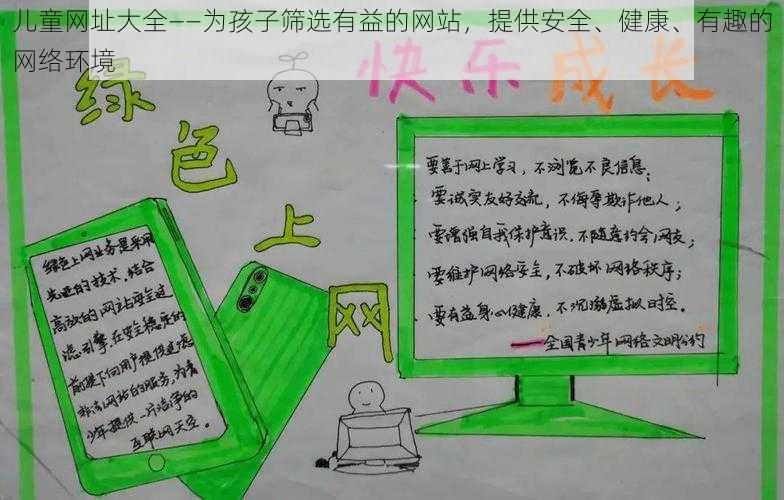 儿童网址大全——为孩子筛选有益的网站，提供安全、健康、有趣的
网络环境
快乐成长
绿色上网
要善于网上学习，不浏览不良信息；
要诚实友好交流，不侮辱欺诈他人；
要增强自我保护意识，不随意约会网友；
要维护网络安全，不破坏网络秩序；
要有益身心健康，不沉溺虚拟时空。
——全国青少年网络文明公约
绿色上网业务是采用
先进的技术，结合
高效的网站安全过
滤引擎在安全稳定的
前提下向用户提供过滤
非法网站的服务，为青
少年提供一片洁净的
互联网天空。